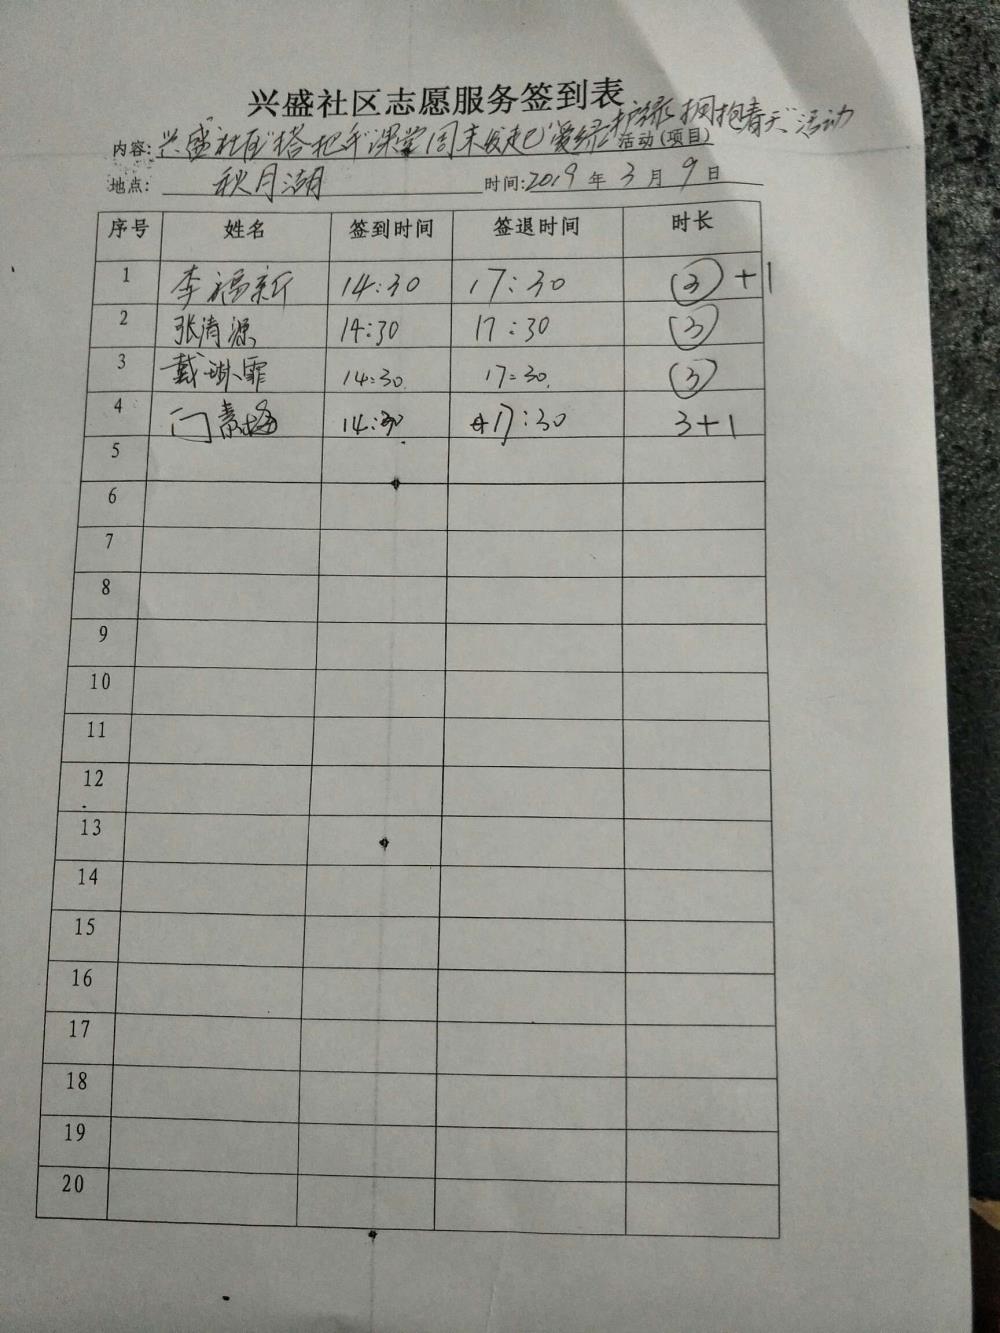 兴盛社区志愿服务签到表
内容:兴盛社区"搭把手"课堂周末发起"爱绿护绿 拥抱春天"活动 活动(项目)
地点: 秋月湖 时间:2019年3月9日
序号 姓名 签到时间 签退时间 时长
1 李福新 14:30 17:30 ③+1
2 张清源 14:30 17:30 ③
3 戴 霏 14:30 17:30 ③
4 门素梅 14:30 17:30 3+1
5
6
7
8
9
10
11
12
13
14
15
16
17
18
19
20